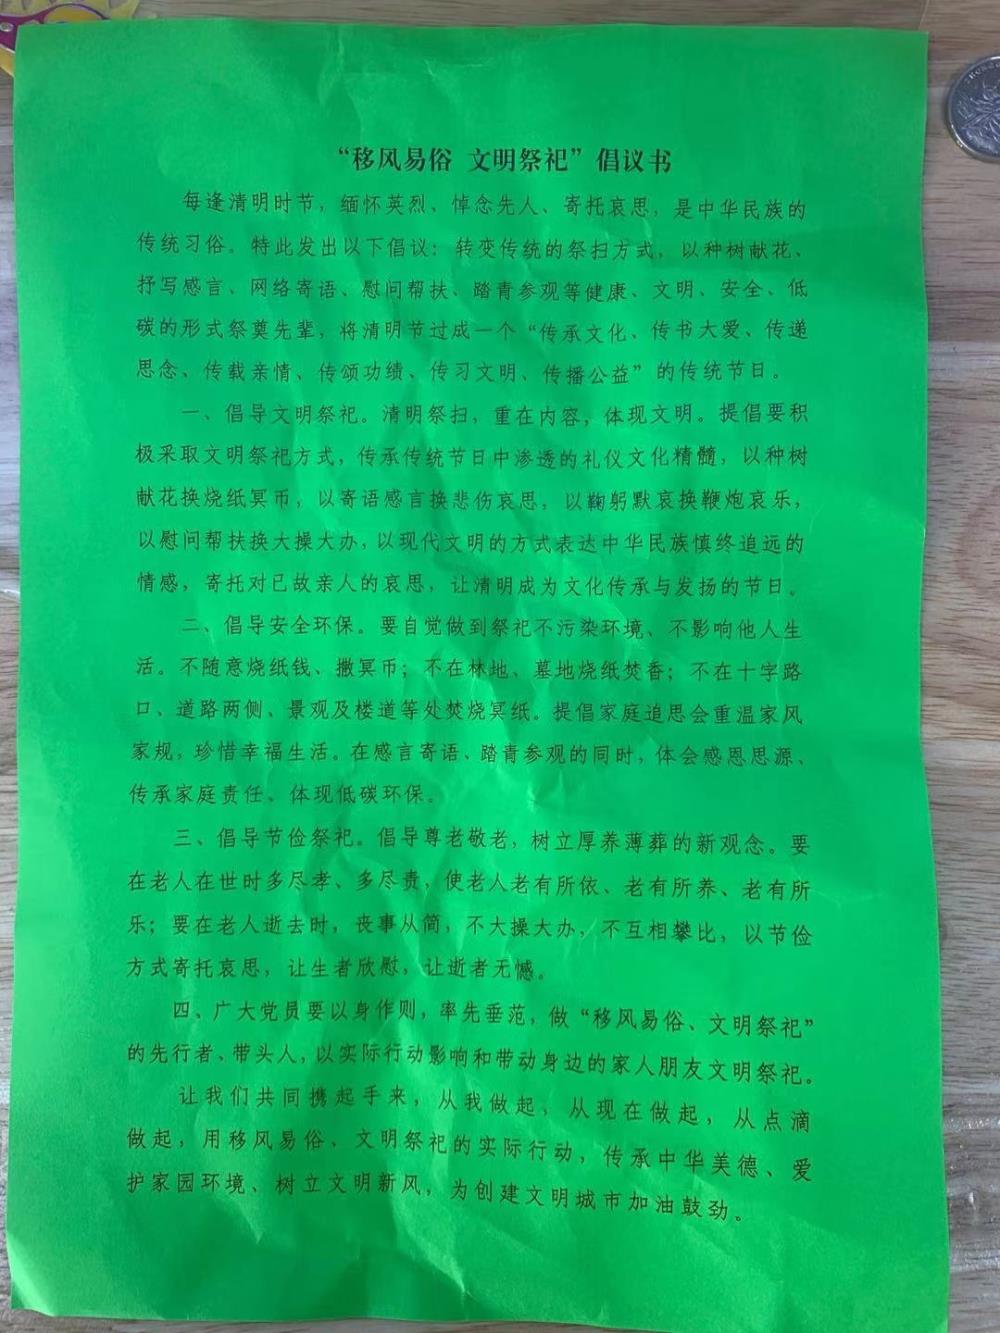 “移风易俗 文明祭祀”倡议书
每逢清明时节，缅怀英烈、悼念先人、寄托哀思，是中华民族的
传统习俗。特此发出以下倡议：转变传统的祭扫方式，以种树献花、
抒写感言、网络寄语、慰问帮扶、踏青参观等健康、文明、安全、低
碳的形式祭奠先辈，将清明节过成一个“传承文化、传书大爱、传递
思念、传载亲情、传颂功绩、传习文明、传播公益”的传统节日。
一、倡导文明祭祀。清明祭扫，重在内容，体现文明。提倡要积
极采取文明祭祀方式，传承传统节日中渗透的礼仪文化精髓，以种树
献花换烧纸冥币，以寄语感言换悲伤哀思，以鞠躬默哀换鞭炮哀乐，
以慰问帮扶换大操大办，以现代文明的方式表达中华民族慎终追远的
情感，寄托对已故亲人的哀思，让清明成为文化传承与发扬的节日。
二、倡导安全环保。要自觉做到祭祀不污染环境、不影响他人生
活。不随意烧纸钱、撒冥币；不在林地、墓地烧纸焚香；不在十字路
口、道路两侧、景观及楼道等处焚烧冥纸。提倡家庭追思会重温家风
家规，珍惜幸福生活。在感言寄语、踏青参观的同时，体会感恩思源、
传承家庭责任、体现低碳环保。
三、倡导节俭祭祀。倡导尊老敬老，树立厚养薄葬的新观念。要
在老人在世时多尽孝、多尽责，使老人老有所依、老有所养、老有所
乐；要在老人逝去时，丧事从简，不大操大办，不互相攀比，以节俭
方式寄托哀思，让生者欣慰，让逝者无憾。
四、广大党员要以身作则，率先垂范，做“移风易俗、文明祭祀”
的先行者、带头人，以实际行动影响和带动身边的家人朋友文明祭祀。
让我们共同携起手来，从我做起，从现在做起，从点滴
做起，用移风易俗、文明祭祀的实际行动，传承中华美德、爱
护家园环境、树立文明新风，为创建文明城市加油鼓劲。